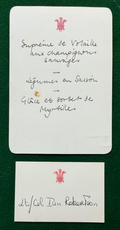 Suprême de Volaille
aux champignons
sauvages
Légumes en Saison
Glâce et sorbet de
Myrtilles
Lt/Col Dan Robertson